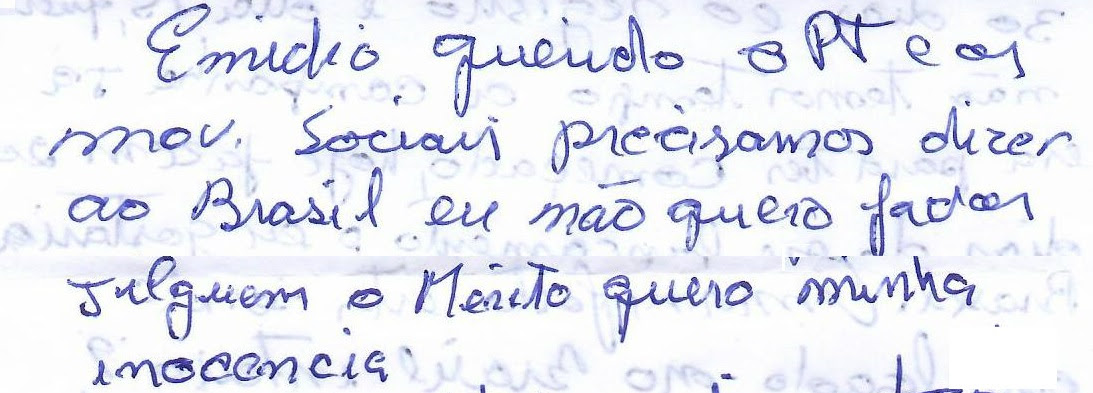 Emidio querido o PT e os
mov. Sociais precisamos dizer
ao Brasil eu não quero favor
Julguem o Mérito quero minha
inocencia